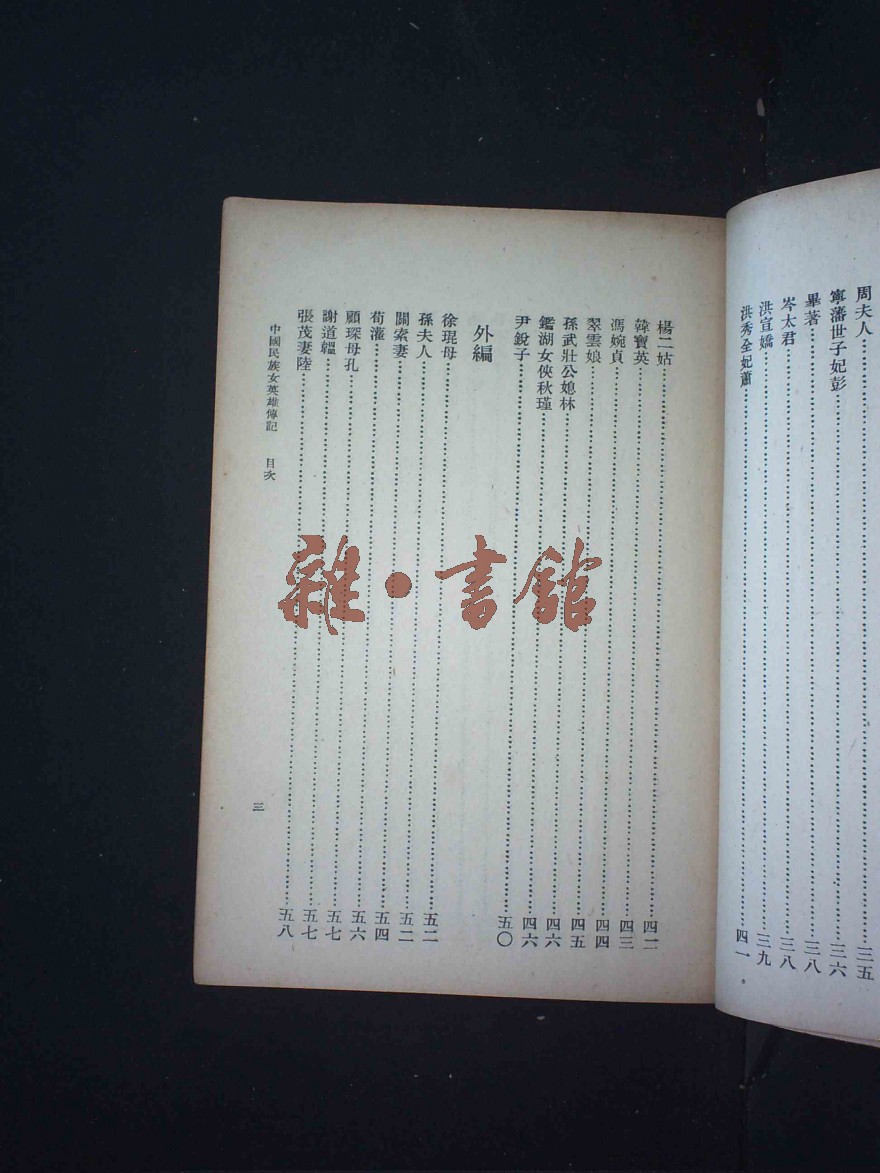 周夫人……三五
寧藩世子妃彭……三六
畢著……三八
岑太君……三八
洪宣嬌……三九
洪秀全妃蕭……四一
楊二姑……四二
韓寶英……四三
馮婉貞……四四
翠雲娘……四五
孫武壯公媳林……四六
鑑湖女俠秋瑾……四六
尹銳子……五〇
外編
徐琨母……五二
孫夫人……五二
關索妻……五四
荀灌……五六
顧琛母孔……五七
謝道韞……五七
張茂妻陸……五八
中國民族女英雄傳記 目次
三
雜·書館